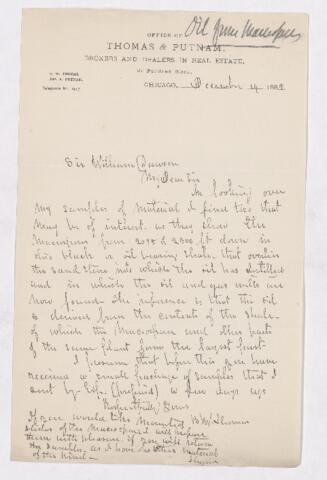 Oil from Macrospores
OFFICE OF
THOMAS & PUTNAM,
BROKERS AND DEALERS IN REAL ESTATE,
CHICAGO, December 14 188
Sir William Dawson
My Dear Sir
In looking over
my samples of material I find two that
may be of interest. as they show the
Macrospores from 2095 & 2500 ft down in
this black or oil bearing shale that overlies
the sand stone into which the oil has distilled
and in which the oil and gas wells are
now found. the inference is that the oil
is derived from the contents of the shale.
of which the Macrospores and other parts
of the same plant form the largest part.
I presume that before this you have
received a small package of samples that I
sent by Ex. (prepaid) a few days ago
Respectfully Yours
B W Thomas
If you would like mounted
slides of the macrospores I will prepare
them with pleasure. if you will return
the samples, as I have no other material
of this kind.